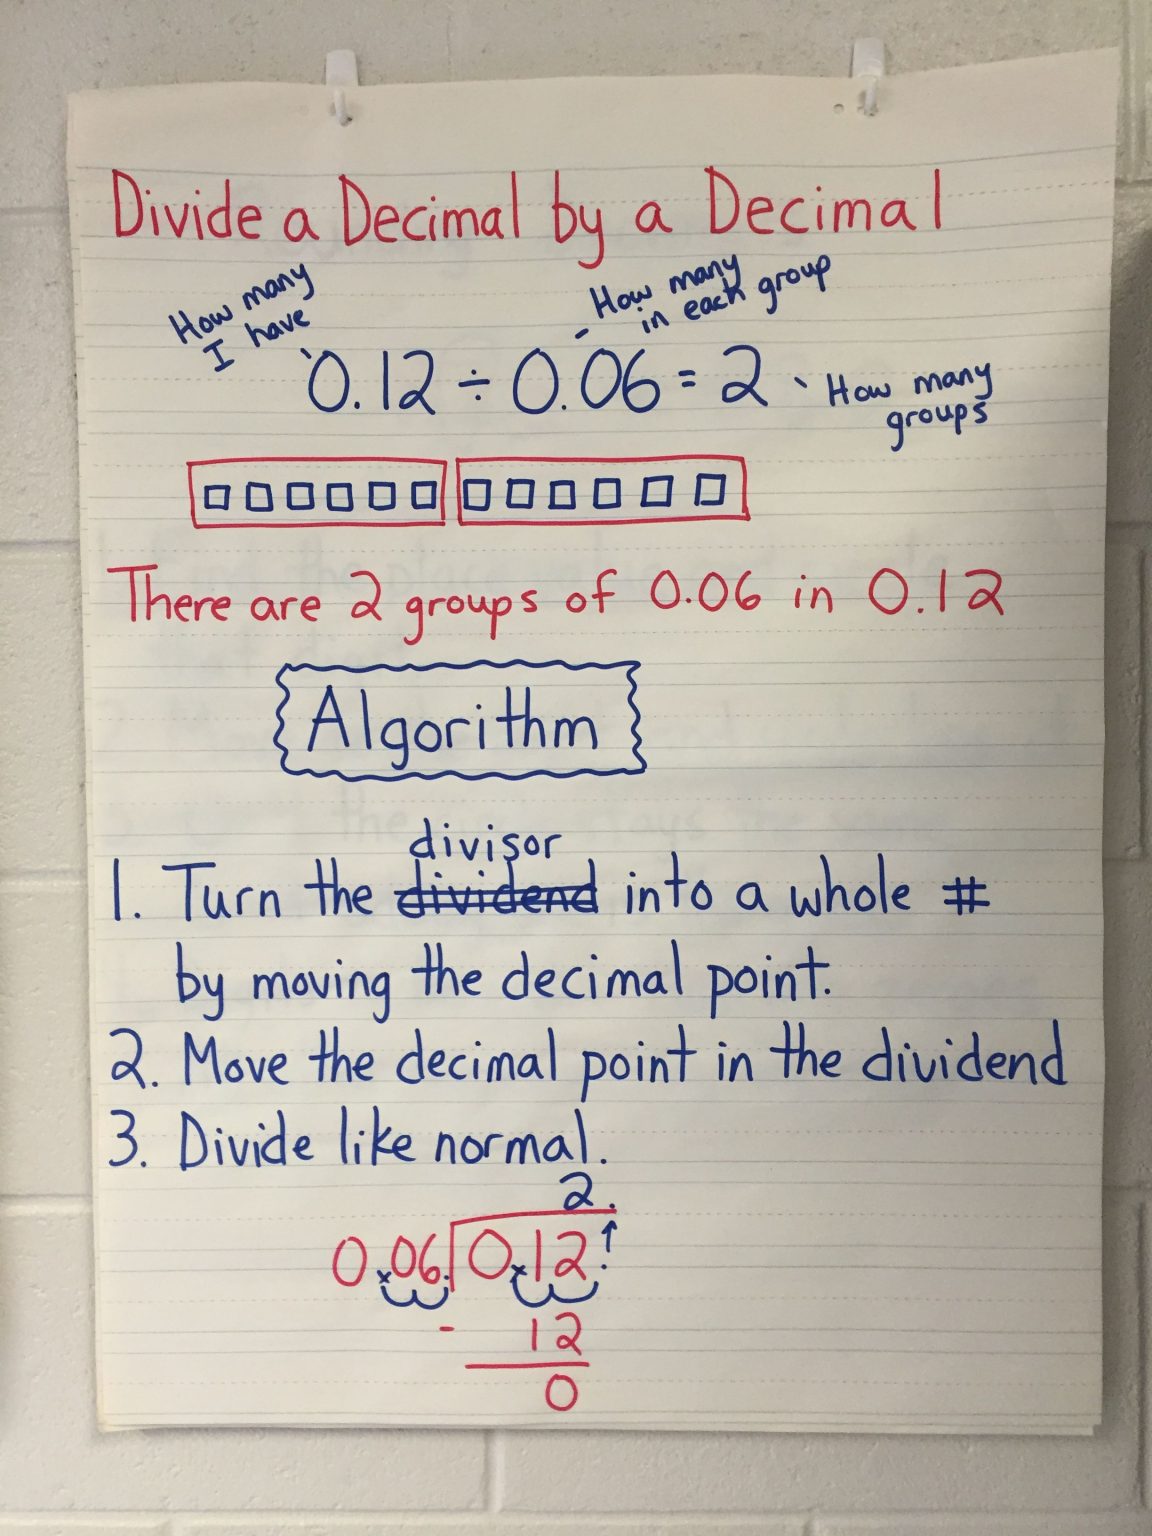 Divide a Decimal by a Decimal
How many
I have
How many
in each group
0.12 ÷ 0.06 = 2
How many
groups
There are 2 groups of 0.06 in 0.12
Algorithm
divisor
1. Turn the dividend into a whole #
by moving the decimal point.
2. Move the decimal point in the dividend
3. Divide like normal.
2.
0.06 0.12.
- 12
0